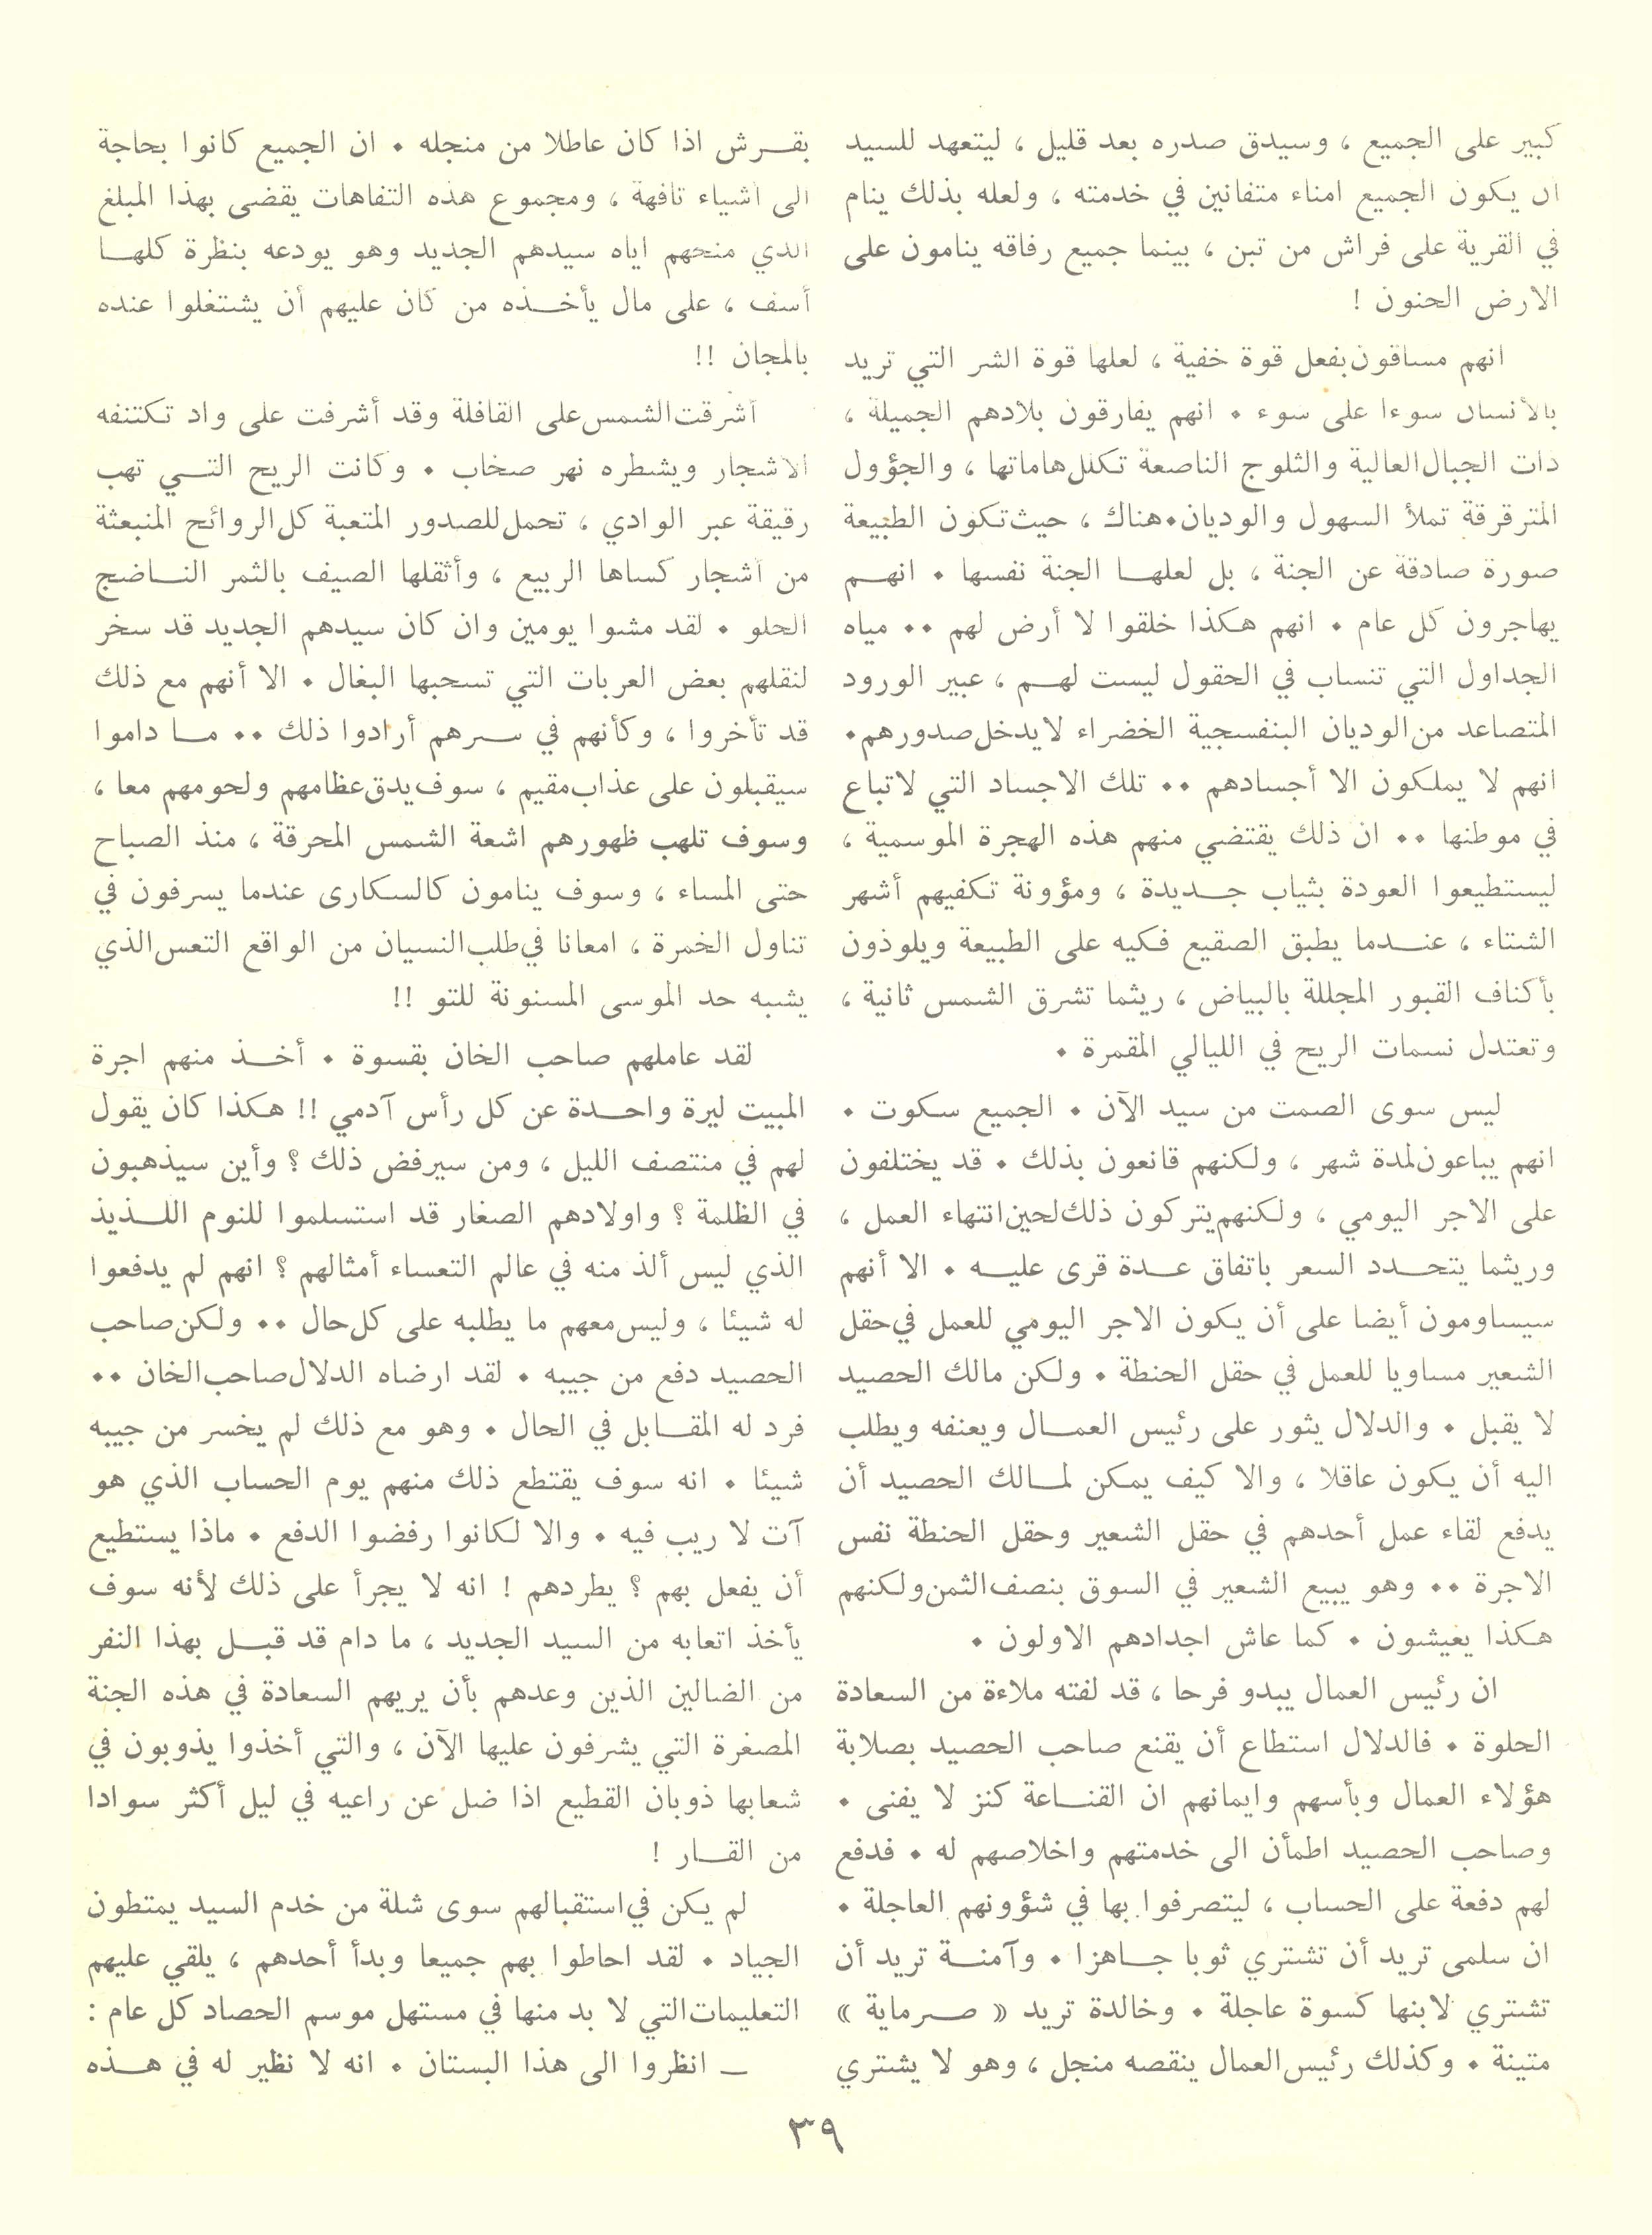 كبير على الجميع ، وسيدق صدره بعد قليل ، ليتعهد للسيد
ان يكون الجميع امناء متفانين في خدمته ، ولعله بذلك ينام
في القرية على فراش من تبن ، بينما جميع رفاقه ينامون على
الارض الحنون !
انهم مساقون بفعل قوة خفية ، لعلها قوة الشر التي تريد
بالانسان سوءا على سوء ٠ انهم يفارقون بلادهم الجميلة ،
ذات الجبال العالية والثلوج الناصعة تكلل هاماتها ، والجؤول
المترقرقة تملأ السهول والوديان ٠ هناك ، حيث تكون الطبيعة
صورة صادقة عن الجنة ، بل لعلهـا الجنة نفسها ٠ انهـم
يهاجرون كل عام ٠ انهم هكذا خلقوا لا أرض لهم ٠٠ مياه
الجداول التي تنساب في الحقول ليست لهـم ، عبير الورود
المتصاعد من الوديان البنفسجية الخضراء لا يدخل صدورهم ٠
انهم لا يملكون الا أجسادهم ٠٠ تلك الاجساد التي لا تباع
في موطنها ٠٠ ان ذلك يقتضي منهم هذه الهجرة الموسمية ،
ليستطيعوا العودة بثياب جـديدة ، ومؤونة تكفيهم أشهر
الشتاء ، عنـدما يطبق الصقيع فكيه على الطبيعة ويلوذون
بأكناف القبور المجللة بالبياض ، ريثما تشرق الشمس ثانية ،
وتعتدل نسمات الريح في الليالي المقمرة ٠
ليس سوى الصمت من سيد الآن ٠ الجميع سكوت ٠
انهم يباعون لمدة شهر ، ولكنهم قانعون بذلك ٠ قد يختلفون
على الاجر اليومي ، ولكنهم يتركون ذلك لحين انتهاء العمل ،
وريثما يتحـدد السعر باتفاق عـدة قرى عليـه ٠ الا أنهم
سيساومون أيضا على أن يكون الاجر اليومي للعمل في حقل
الشعير مساويا للعمل في حقل الحنطة ٠ ولكن مالك الحصيد
لا يقبل ٠ والدلال يثور على رئيس العمـال ويعنفه ويطلب
اليه أن يكون عاقلا ، والا كيف يمكن لمـالك الحصيد أن
يدفع لقاء عمل أحدهم في حقل الشعير وحقل الحنطة نفس
الاجرة ٠٠ وهو يبيع الشعير في السوق بنصف الثمن ولكنهم
هكذا يعيشون ٠ كما عاش اجدادهم الاولون ٠
ان رئيس العمال يبدو فرحا ، قد لفته ملاءة من السعادة
الحلوة ٠ فالدلال استطاع أن يقنع صاحب الحصيد بصلابة
هؤلاء العمال وبأسهم وايمانهم ان القنـاعة كنز لا يفنى ٠
وصاحب الحصيد اطمأن الى خدمتهم واخلاصهم له ٠ فدفع
لهم دفعة على الحساب ، ليتصرفوا بها في شؤونهم العاجلة ٠
ان سلمى تريد أن تشتري ثوبا جـاهزا ٠ وآمنـة تريد أن
تشتري لابنها كسوة عاجلة ٠ وخالدة تريد « صـرماية »
متينة ٠ وكذلك رئيس العمال ينقصه منجل ، وهو لا يشتري
بقـرش اذا كان عاطلا من منجله ٠ ان الجميع كانوا بحاجة
الى أشياء تافهة ، ومجموع هذه التفاهات يقضى بهذا المبلغ
الذي منحهم اياه سيدهم الجديد وهو يودعه بنظرة كلهـا
أسف ، على مال يأخـذه من كان عليهم أن يشتغلوا عنده
بالمجان !!
أشرقت الشمس على القافلة وقد أشرفت على واد تكتنفه
الاشجار ويشطره نهر صخاب ٠ وكانت الريح التـي تهب
رقيقة عبر الوادي ، تحمل للصدور المتعبة كل الروائح المنبعثة
من أشجار كساها الربيع ، وأثقلها الصيف بالثمر النـاضج
الحلو ٠ لقد مشوا يومين وان كان سيدهم الجديد قد سخر
لنقلهم بعض العربات التي تسحبها البغال ٠ الا أنهم مع ذلك
قد تأخروا ، وكأنهم في سـرهم أرادوا ذلك ٠٠ مـا داموا
سيقبلون على عذاب مقيم ، سوف يدق عظامهم ولحومهم معا ،
وسوف تلهب ظهورهم اشعة الشمس المحرقة ، منذ الصباح
حتى المساء ، وسوف ينامون كالسكارى عندما يسرفون في
تناول الخمرة ، امعانا في طلب النسيان من الواقع التعس الذي
يشبه حد الموسى المسنونة للتو !!
لقد عاملهم صاحب الخان بقسوة ٠ أخـذ منهم اجرة
المبيت ليرة واحـدة عن كل رأس آدمي !! هكذا كان يقول
لهم في منتصف الليل ، ومن سيرفض ذلك ؟ وأين سيذهبون
في الظلمة ؟ واولادهم الصغار قد استسلموا للنوم اللـذيذ
الذي ليس ألذ منه في عالم التعساء أمثالهم ؟ انهم لم يدفعوا
له شيئا ، وليس معهم ما يطلبه على كل حال ٠٠ ولكن صاحب
الحصيد دفع من جيبه ٠ لقد ارضاه الدلال صاحب الخان ٠٠
فرد له المقـابل في الحال ٠ وهو مع ذلك لم يخسر من جيبه
شيئا ٠ انه سوف يقتطع ذلك منهم يوم الحساب الذي هو
آت لا ريب فيه ٠ والا لكانوا رفضوا الدفع ٠ ماذا يستطيع
أن يفعل بهم ؟ يطردهم ! انه لا يجرأ على ذلك لأنه سوف
يأخذ اتعابه من السيد الجديد ، ما دام قد قبـل بهذا النفر
من الضالين الذين وعدهم بأن يريهم السعادة في هذه الجنة
المصغرة التي يشرفون عليها الآن ، والتي أخذوا يذوبون في
شعابها ذوبان القطيع اذا ضل عن راعيه في ليل أكثر سوادا
من القـار !
لم يكن في استقبالهم سوى شلة من خدم السيد يمتطون
الجياد ٠ لقد احاطوا بهم جميعا وبدأ أحدهم ، يلقي عليهم
التعليمات التي لا بد منها في مستهل موسم الحصاد كل عام :
ـ انظروا الى هذا البستان ٠ انه لا نظير له في هـذه
٣٩